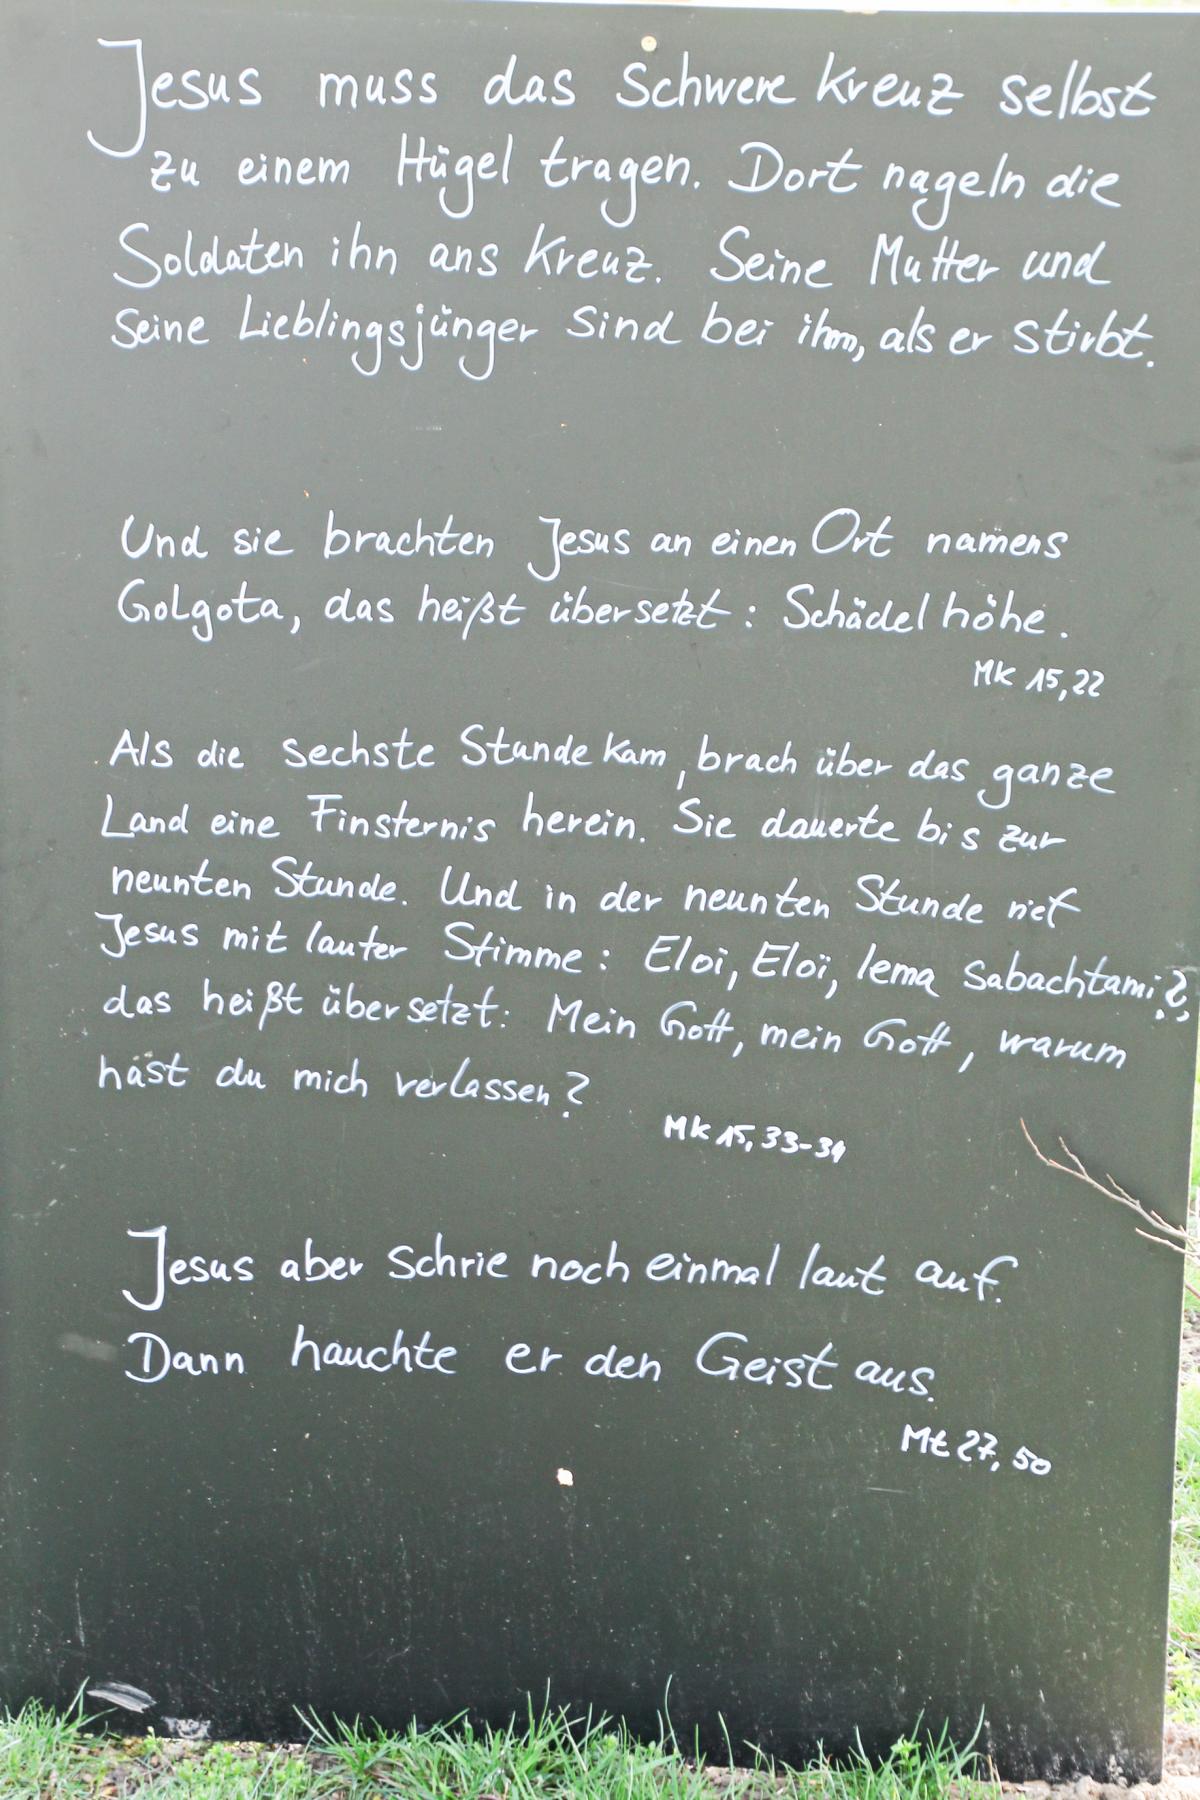 Jesus muss das schwere Kreuz selbst
zu einem Hügel tragen. Dort nageln die
Soldaten ihn ans Kreuz. Seine Mutter und
seine Lieblingsjünger sind bei ihm, als er stirbt.
Und sie brachten Jesus an einen Ort namens
Golgota, das heißt übersetzt: Schädelhöhe.
Mk 15,22
Als die sechste Stunde kam, brach über das ganze
Land eine Finsternis herein. Sie dauerte bis zur
neunten Stunde. Und in der neunten Stunde rief
Jesus mit lauter Stimme: Eloï, Eloï, lema sabachtami?,
das heißt übersetzt: Mein Gott, mein Gott, warum
hast du mich verlassen?
Mk 15, 33-34
Jesus aber schrie noch einmal laut auf.
Dann hauchte er den Geist aus.
Mt 27, 50